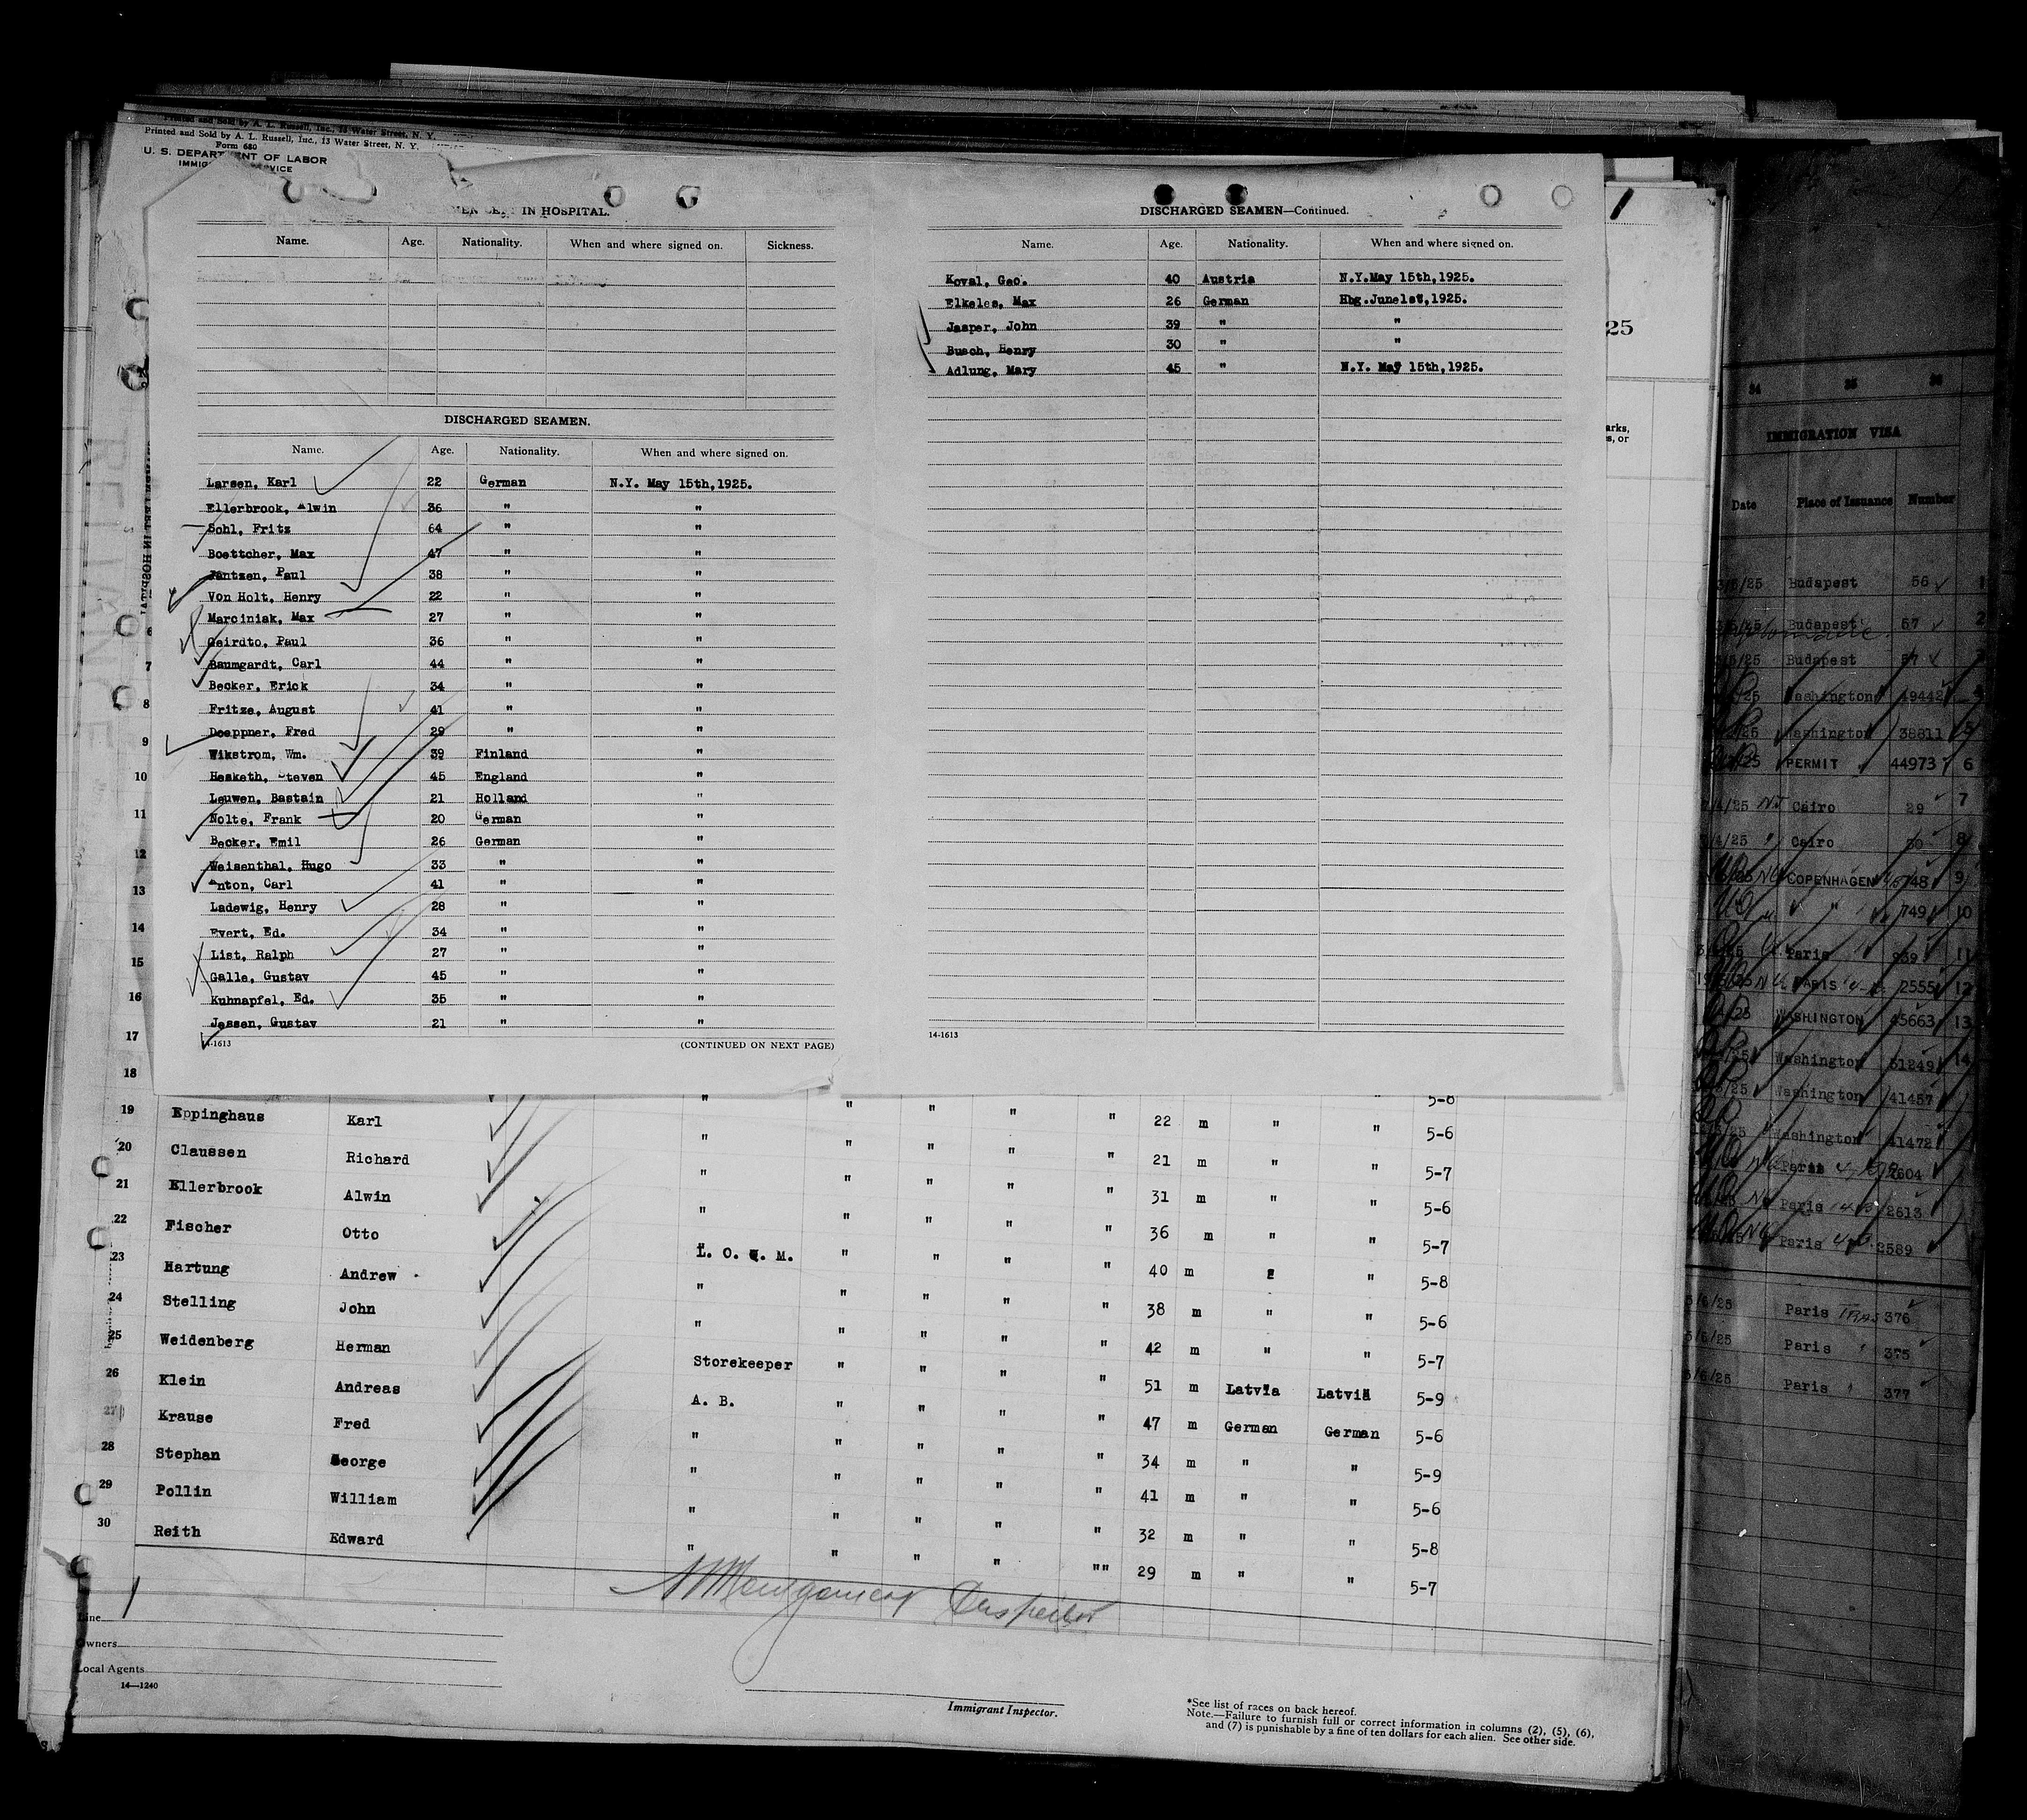 Printed and Sold by A. L. Russell, Inc., 13 Water Street, N. Y.
Printed and Sold by A. L. Russell, Inc., 13 Water Street, N. Y.
Form 680
U. S. DEPARTMENT OF LABOR
IN HOSPITAL.
Name. Age. Nationality. When and where signed on. Sickness.
DISCHARGED SEAMEN.
Name. Age. Nationality. When and where signed on.
Larsen, Karl 22 German N.Y. May 15th,1925.
Ellerbrook, Alwin 36 " "
Sohl, Fritz 64 " "
Boettcher, Max 47 " "
Jantzen, Paul 38 " "
Von Holt, Henry 22 " "
Marciniak, Max 27 " "
Geirdto, Paul 36 " "
Baumgardt, Carl 44 " "
Becker, Erick 34 " "
Fritze, August 41 " "
Doeppner, Fred 29 " "
Wikstrom, Wm. 39 Finland "
Hesketh, Steven 45 England "
Leuwen, Bastain 21 Holland "
Nolte, Frank 20 German "
Becker, Emil 26 German "
Weisenthal, Hugo 33 " "
Anton, Carl 41 " "
Ladewig, Henry 28 " "
Evert, Ed. 34 " "
List, Ralph 27 " "
Galle, Gustav 45 " "
Kuhnapfel, Ed. 35 " "
Jessen, Gustav 21 " "
14-1613 (CONTINUED ON NEXT PAGE)
DISCHARGED SEAMEN—Continued.
Name. Age. Nationality. When and where signed on.
Koval, Geo. 40 Austria N.Y.May 15th,1925.
Elkeles, Max 26 German Hbg.June1st,1925.
Jasper, John 39 " "
Busch, Henry 30 " "
Adlung, Mary 45 " N.Y. May 15th,1925.
14-1613
25
arks,
s, or
6
7
8
9
10
11
12
13
14
15
16
17
18
" " " " " 22 m " " 5-8
19 Eppinghaus Karl " " " " " 22 m " " 5-6
20 Claussen Richard " " " " " 21 m " " 5-7
21 Ellerbrook Alwin " " " " " 31 m " " 5-6
22 Fischer Otto " " " " 36 m " " 5-7
23 Hartung Andrew L. O. M. " " " " 40 m " " 5-8
24 Stelling John " " " " " 38 m " " 5-6
25 Weidenberg Herman " " " " " 42 m " " 5-7
26 Klein Andreas Storekeeper " " " " 51 m Latvia Latvia 5-9
27 Krause Fred A. B. " " " " 47 m German German 5-6
28 Stephan George " " " " " 34 m " " 5-9
29 Pollin William " " " " " 41 m " " 5-6
30 Reith Edward " " " " " 32 m " " 5-8
" " " " "" 29 m " " 5-7
Montgomery Inspector
Line
Owners
Local Agents
14—1240
Immigrant Inspector.
*See list of races on back hereof.
Note.—Failure to furnish full or correct information in columns (2), (5), (6),
and (7) is punishable by a fine of ten dollars for each alien. See other side.
34 35 36
IMMIGRATION VISA
Date Place of Issuance Number
3/5/25 Budapest 56 1
Budapest 57 2
Budapest 57
Washington 49442
Washington 38811 5
PERMIT 44973 6
Cairo 29 7
Cairo 30 8
COPENHAGEN 748 9
" 749 10
Paris 939 11
PARIS 2555 12
WASHINGTON 45663 13
Washington 51249 14
Washington 41457
Washington 41472
Paris 2604
Paris 2613
Paris 2589
5/6/25 Paris 376
5/6/25 Paris 375
5/6/25 Paris 377